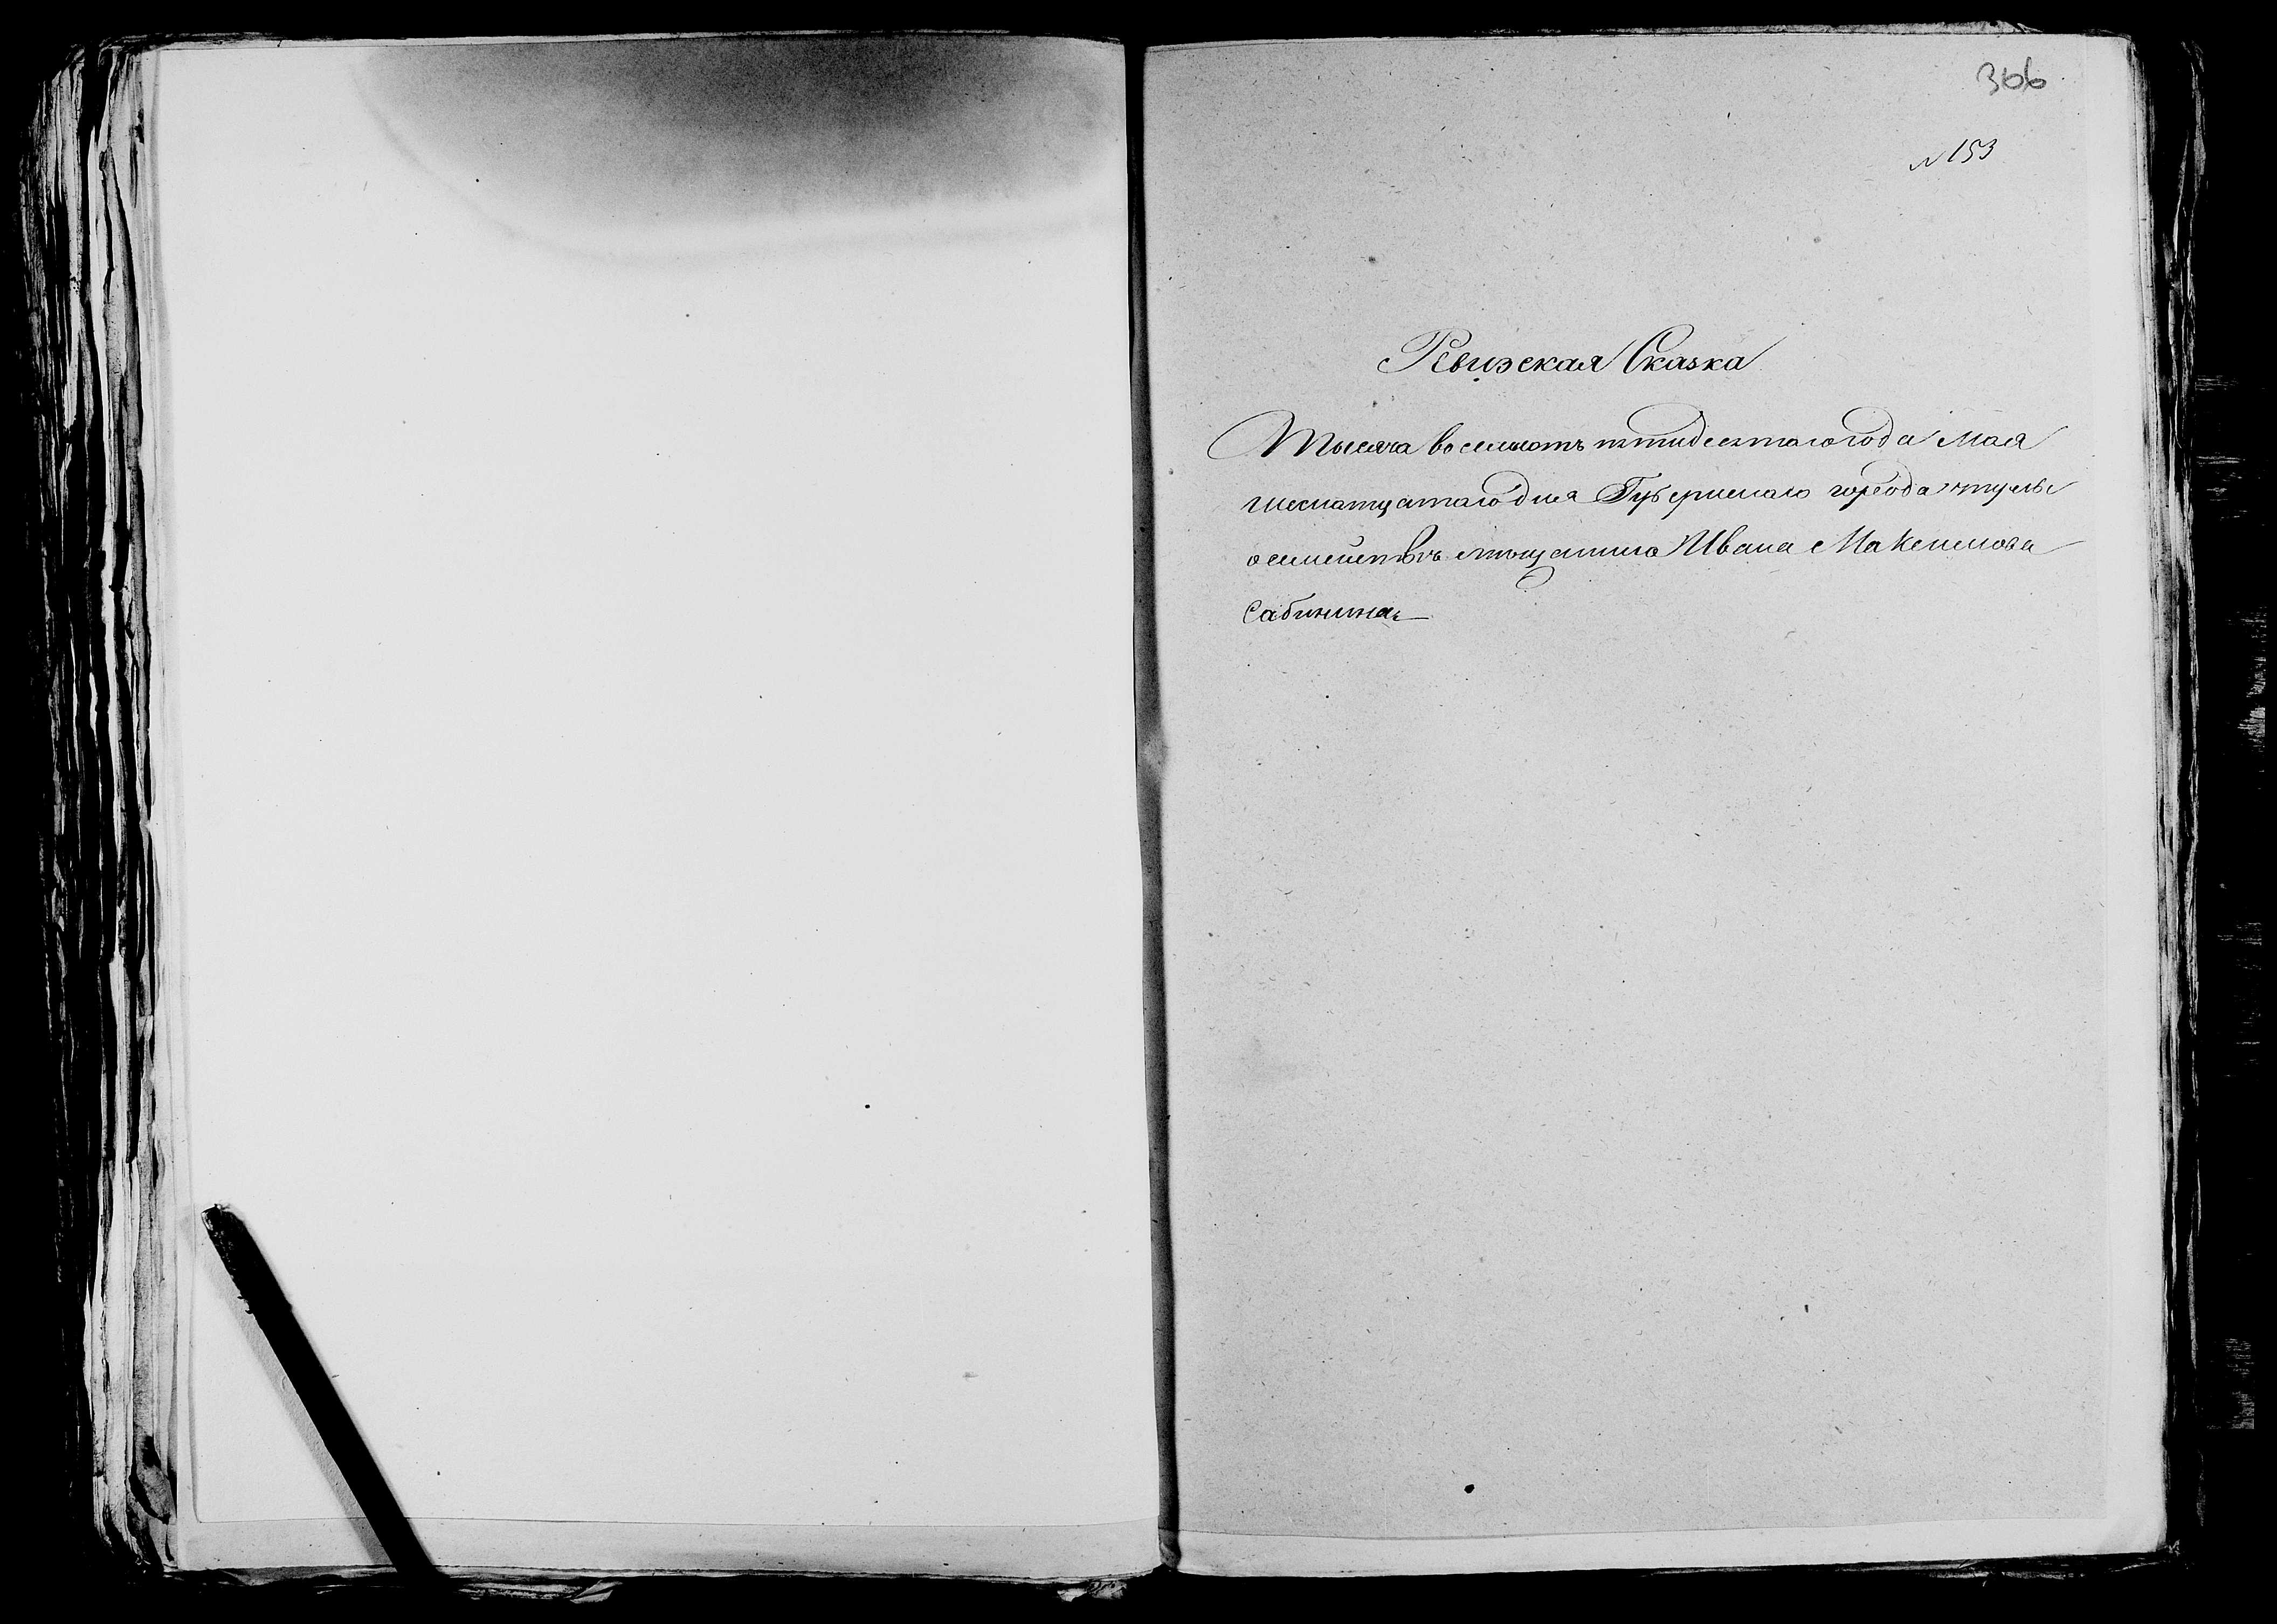 366
№ 153
Ревизская Сказка
Тысяча восемьсотъ пятидесятаго года Мая
шеснатцатаго дня Губернскаго города тулы
о семействѣ мѣщанина Ивана Максимова
Сабинина